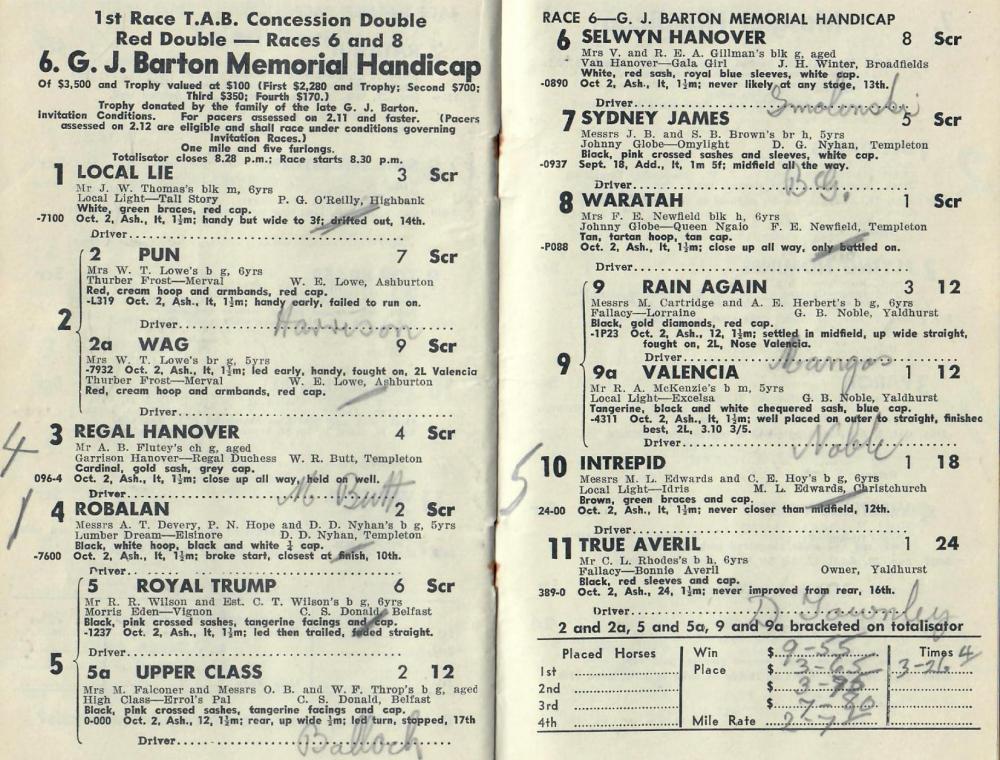 1st Race T.A.B. Concession Double
Red Double — Races 6 and 8
6. G. J. Barton Memorial Handicap
Of $3,500 and Trophy valued at $100 (First $2,280 and Trophy; Second $700;
Third $350; Fourth $170.)
Trophy donated by the family of the late G. J. Barton.
Invitation Conditions. For pacers assessed on 2.11 and faster. (Pacers
assessed on 2.12 are eligible and shall race under conditions governing
Invitation Races.)
One mile and five furlongs.
Totalisator closes 8.28 p.m.; Race starts 8.30 p.m.
1 LOCAL LIE 3 Scr
Mr J. W. Thomas's blk m, 6yrs
Local Light—Tall Story P. G. O'Reilly, Highbank
White, green braces, red cap.
-7100 Oct. 2, Ash., lt, 1½m; handy but wide to 3f; drifted out, 14th.
Driver
2 PUN 7 Scr
Mrs W. T. Lowe's b g, 6yrs
Thurber Frost—Merval W. E. Lowe, Ashburton
Red, cream hoop and armbands, red cap.
-L319 Oct. 2, Ash., lt, 1½m; handy early, failed to run on.
2
Driver Harrison
2a WAG 9 Scr
Mrs W. T. Lowe's br g, 5yrs
-7932 Oct. 2, Ash., lt, 1½m; led early, handy, fought on, 2L Valencia
Thurber Frost—Merval W. E. Lowe, Ashburton
Red, cream hoop and armbands, red cap.
Driver
4
3 REGAL HANOVER 4 Scr
Mr A. B. Flutey's ch g, aged
Garrison Hanover—Regal Duchess W. R. Butt, Templeton
Cardinal, gold sash, grey cap.
096-4 Oct. 2, Ash., lt, 1½m; close up all way, held on well.
Driver M Butt
1
4 ROBALAN 2 Scr
Messrs A. T. Devery, P. N. Hope and D. D. Nyhan's b g, 5yrs
Lumber Dream—Elsinore D. D. Nyhan, Templeton
Black, white hoop, black and white ¼ cap.
-7600 Oct. 2, Ash., lt, 1½m; broke start, closest at finish, 10th.
Driver
5 ROYAL TRUMP 6 Scr
Mr R. R. Wilson and Est. C. T. Wilson's b g, 6yrs
Morris Eden—Vignon C. S. Donald, Belfast
Black, pink crossed sashes, tangerine facings and cap.
-1237 Oct. 2, Ash., lt, 1½m; led then trailed, faded straight.
Driver
5
5a UPPER CLASS 2 12
Mrs M. Falconer and Messrs O. B. and W. F. Throp's b g, aged
High Class—Errol's Pal C. S. Donald, Belfast
Black, pink crossed sashes, tangerine facings and cap.
0-000 Oct. 2, Ash., 12, 1½m; rear, up wide ½m; led turn, stopped, 17th
Driver Balloch
RACE 6—G. J. BARTON MEMORIAL HANDICAP
6 SELWYN HANOVER 8 Scr
Mrs V. and R. E. A. Gillman's blk g, aged
Van Hanover—Gala Girl J. H. Winter, Broadfields
White, red sash, royal blue sleeves, white cap.
-0890 Oct 2, Ash, lt, 1½m; never likely at any stage, 13th.
Driver Smolenski
7 SYDNEY JAMES 5 Scr
Messrs J. B. and S. B. Brown's br h, 5yrs
Johnny Globe—Omylight D. G. Nyhan, Templeton
Black, pink crossed sashes and sleeves, white cap.
-0937 Sept. 18, Add., lt, 1m 5f; midfield all the way.
Driver
8 WARATAH 1 Scr
Mrs F. E. Newfield blk h, 6yrs
Johnny Globe—Queen Ngaio F. E. Newfield, Templeton
Tan, tartan hoop, tan cap.
-P088 Oct. 2, Ash., lt, 1½m; close up all way, only battled on.
Driver
9 RAIN AGAIN 3 12
Messrs M. Cartridge and A. E. Herbert's b g, 6yrs
Fallacy—Lorraine G. B. Noble, Yaldhurst
Black, gold diamonds, red cap.
-1P23 Oct. 2, Ash., 12, 1½m; settled in midfield, up wide straight,
fought on, 2L, Nose Valencia.
9
Driver Mangos
9a VALENCIA 1 12
Mr R. A. McKenzie's b m, 5yrs
Local Light—Excelsa G. B. Noble, Yaldhurst
Tangerine, black and white chequered sash, blue cap.
-4311 Oct. 2, Ash., lt, 1½m; well placed on outer to straight, finished
best, 2L, 3.10 3/5.
Driver Noble
5
10 INTREPID 1 18
Messrs M. L. Edwards and C. E. Hoy's b g, 6yrs
Local Light—Idris M. L. Edwards, Christchurch
Brown, green braces and cap.
24-00 Oct. 2, Ash., lt, 1½m; never closer than midfield, 12th.
Driver
11 TRUE AVERIL 1 24
Mr C. L. Rhodes's b h, 6yrs
Fallacy—Bonnie Averil Owner, Yaldhurst
Black, red sleeves and cap.
389-0 Oct. 2, Ash., 24, 1½m; never improved from rear, 16th.
Driver D Townley
2 and 2a, 5 and 5a, 9 and 9a bracketed on totalisator
Placed Horses Win $ 9-55 Times 4
1st Place $ 3-65 3-26
2nd $
3rd $
4th Mile Rate